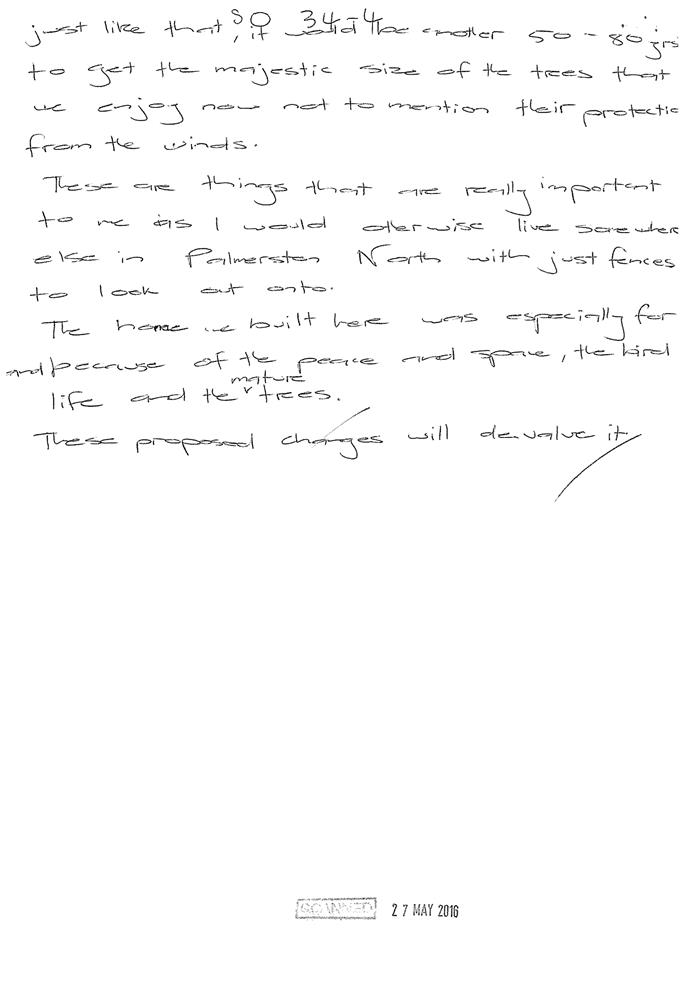 SO 34-4
just like that, it would be another 50 - 80 yrs
to get the majestic size of the trees that
we enjoy now not to mention their protectio
from the winds.
These are things that are really important
to me as I would otherwise live somewhere
else in Palmerston North with just fences
to look out onto.
The home we built here was especially for
and because of the peace and space, the bird
life and the mature trees.
These proposed changes will devalue it
SCANNED 27 MAY 2016